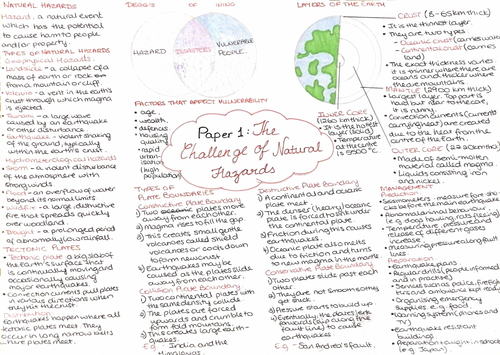 NATURAL HAZARDS
Hazard - a natural event
which has the potential
to cause harm to people
and/or property.
TYPES OF NATURAL HAZARDS
Geophysical Hazards:
Landslide - a collapse of a
mass of earth or rock
from a mountain or cliff.
Volcano - a vent in the earth's
crust through which magma
is ejected.
Tsunami - a large wave
caused by an earthquake
or other disturbance.
Earthquake - violent shaking
of the ground, typically
within the earth's crust.
Hydrometeorological Hazards
Storm - a violent disturbance
of the atmosphere with
strong winds
Flood - an overflow of water
beyond its normal limits
Wildfire - a large destructive
fire that spreads quickly
over woodland.
Drought - a prolonged period
of abnormally low rainfall.
TECTONIC PLATES
Tectonic plate - a big slab of
the Earth's surface that
is continually moving and
occasionally causing
major earthquakes
Convection currents pull plates
in various directions when
they hit the crust
Distribution
Earthquakes happen where all
tectonic plates meet. They
occur in long narrow belts
where plates meet.
HAZARD
DISASTERS
VULNERABLE
PEOPLE
FACTORS THAT AFFECT VULNERABILITY
age
wealth
defences
housing
quality
rapid
urban-
isation
(high
population)
Paper 1: The
Challenge of Natural
Hazards
TYPES OF
PLATE BOUNDARIES
Constructive Plate Boundary
1) Two plates move
away from each other.
2) Magma rises to fill the gap
3) This creates small, gentle
volcanoes called shield
volcanoes or cools down
to form new crust
4) Earthquakes may be
caused as the plates slide
away from each other.
Collision Plate Boundary
1) Two continental plates with
the same density collide
2) The plates are forced
upwards and crumble to
form fold mountains.
3) This creates large earth-
quakes.
E.g. India and the
Himalayas
LAYERS OF THE EARTH
CRUST (8-65km thick)
It is the thinnest layer.
They are two types
- Oceanic crust (carries water)
- Continental crust (carries
land)
The exact thickness varies
it is thinner where there are
oceans and thicker where
there are mountains
MANTLE (2900 km thick)
Largest layer. Top part is
solid but near to the core,
it is runny.
Convection currents (currents
carrying heat) are created
due to the heat from the
centre of the Earth.
INNER CORE
It is the hottest
layer (solid)
Temperature
at the centre
is 5500°C
Made of semi-molten
material called magma.
Liquids consisting iron
and nickel.
Destructive Plate Boundary
1) A continental and oceanic
plate meet
2) The denser (heavy) oceanic
plate is forced to sink under
the continental plate
3) Friction during this causes
earthquakes.
4) Oceanic plate also melts
due to friction and turns
to new magma in the mantle
Conservative Plate Boundary
1) Two plates slide past each
other.
2) They are not smooth so they
get stuck.
3) Pressure starts to build up
4) Eventually, the plates jerk
forward (in along fine
fault line) to cause
earthquakes
E.g - San Andreas fault.
MANAGEMENT
Prediction
Abnormal animal behaviour
like dogs howling, rats
Temperature, pressure and
release of different gases
increase
Measuring pressure along fault
lines
Preparation
Make escape plans
Services such as police, firefighters
Organising emergency
supplies e.g. food
Warning system (phones and
TV)
Earthquake resistant
buildings